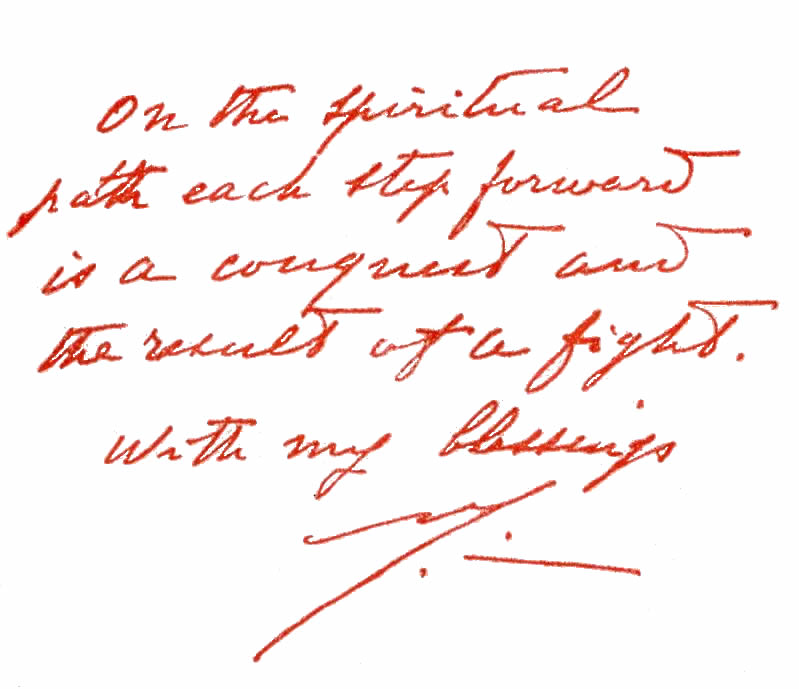 On the spiritual
path each step forward
is a conquest and
the result of a fight.
With my blessings